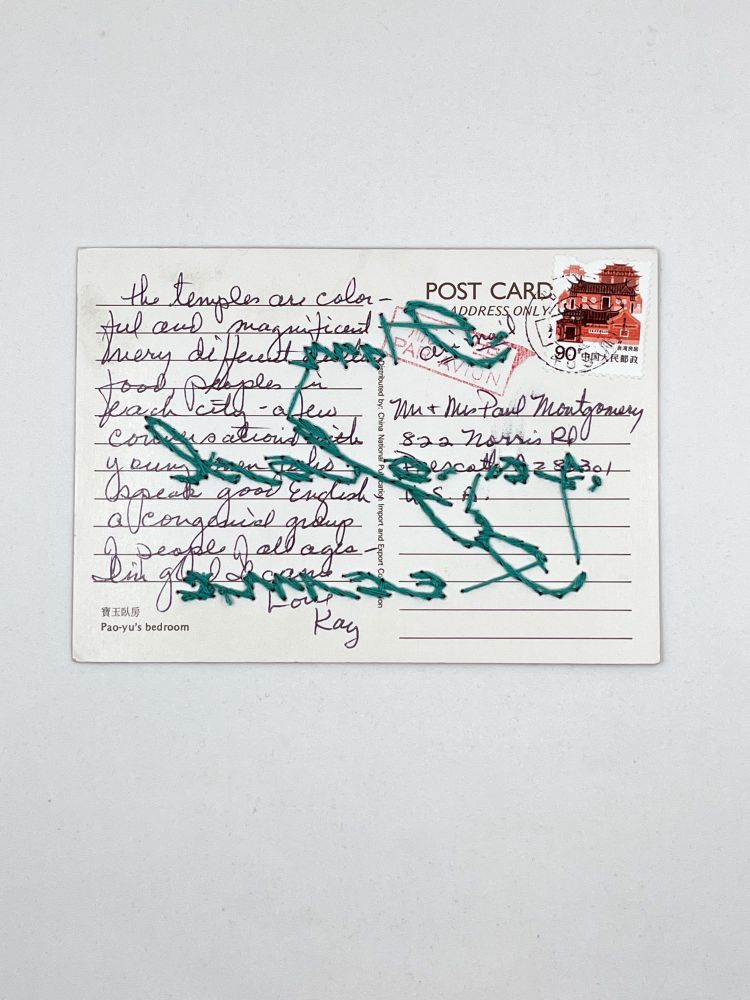 the temples are color-
ful and magnificent
very different
food, peoples in
each city - a few
conversations with
young men who
speak good English
a congenial group
of people of all ages -
I'm glad I came
Love
Kay
寶玉臥房
Pao-yu's bedroom
Distributed by: China National Publication Import and Export Corporation
POST CARD
ADDRESS ONLY
air mail
PAR AVION
90分
中国人民邮政
台湾民居
Mr + Mrs Paul Montgomery
822 Norris Rd
Prescott, AZ 86301
U.S.A.